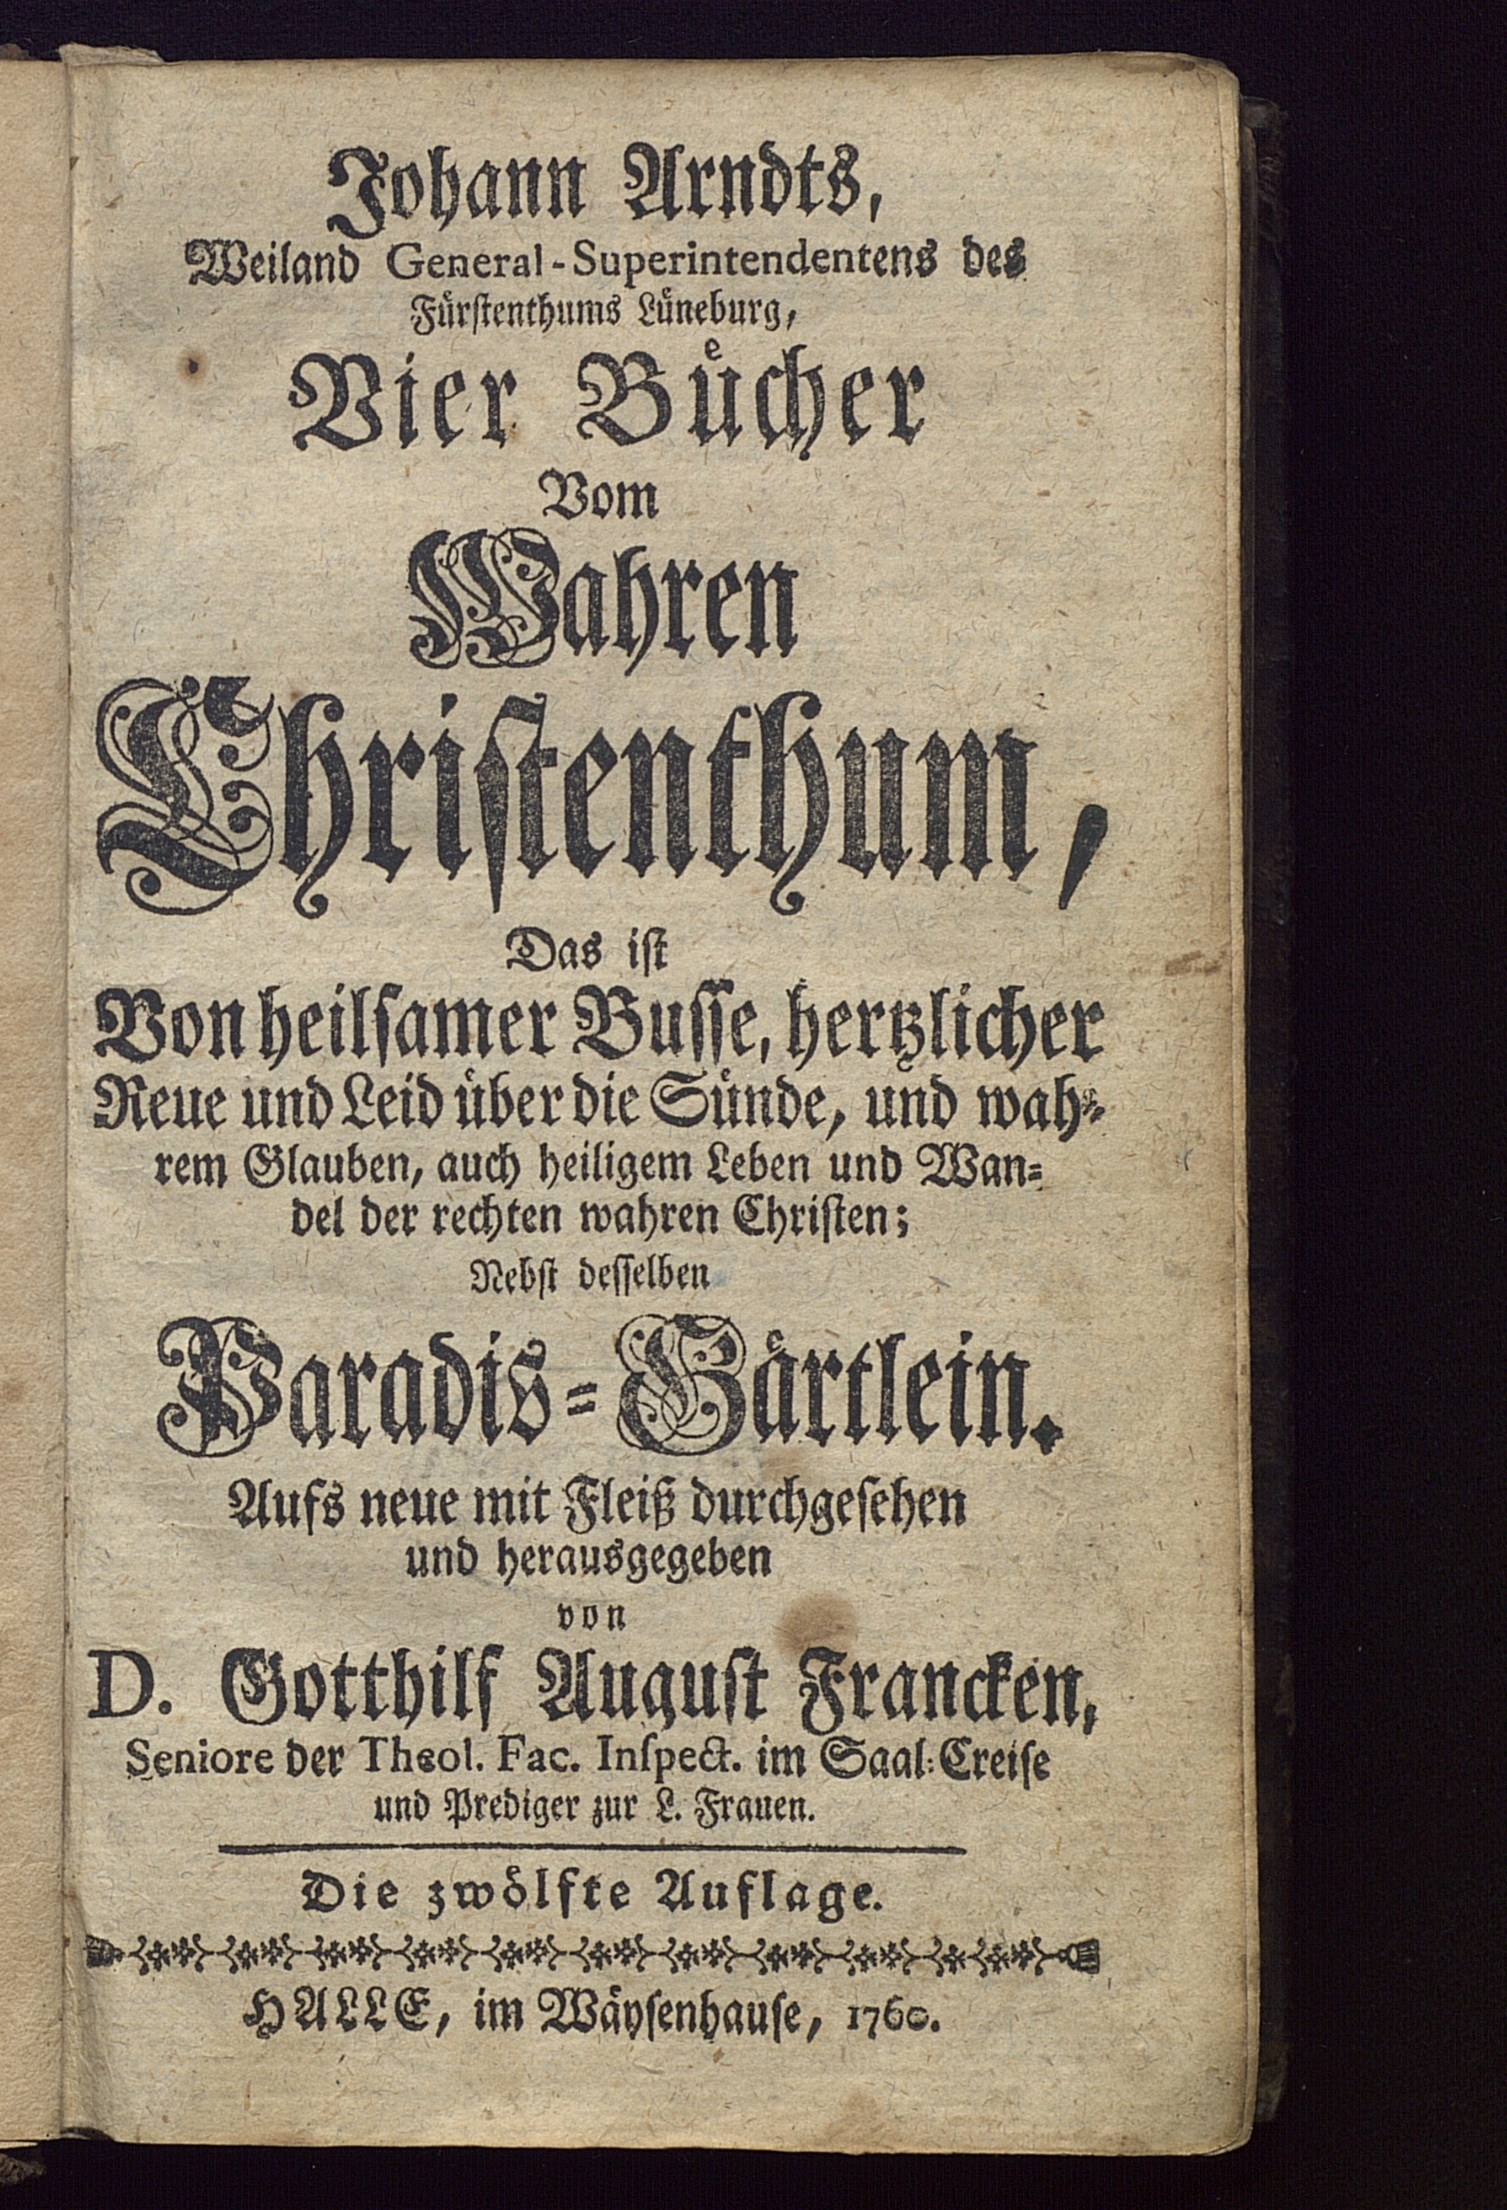 Johann Arndts,
Weiland General-Superintendentens des
Fürſtenthums Lüneburg,
Vier Bücher
Vom
Wahren
Chriſtenthum,
Das iſt
Von heilſamer Buſſe, hertzlicher
Reue und Leid über die Sünde, und wah-
rem Glauben, auch heiligem Leben und Wan-
del der rechten wahren Chriſten;
Nebſt deſſelben
Paradis-Gärtlein.
Aufs neue mit Fleiß durchgeſehen
und herausgegeben
von
D. Gotthilf Auguſt Francken,
Seniore der Theol. Fac. Inſpect. im Saal-Creiſe
und Prediger zur L. Frauen.
Die zwölfte Auflage.
HALLE, im Wäyſenhauſe, 1760.